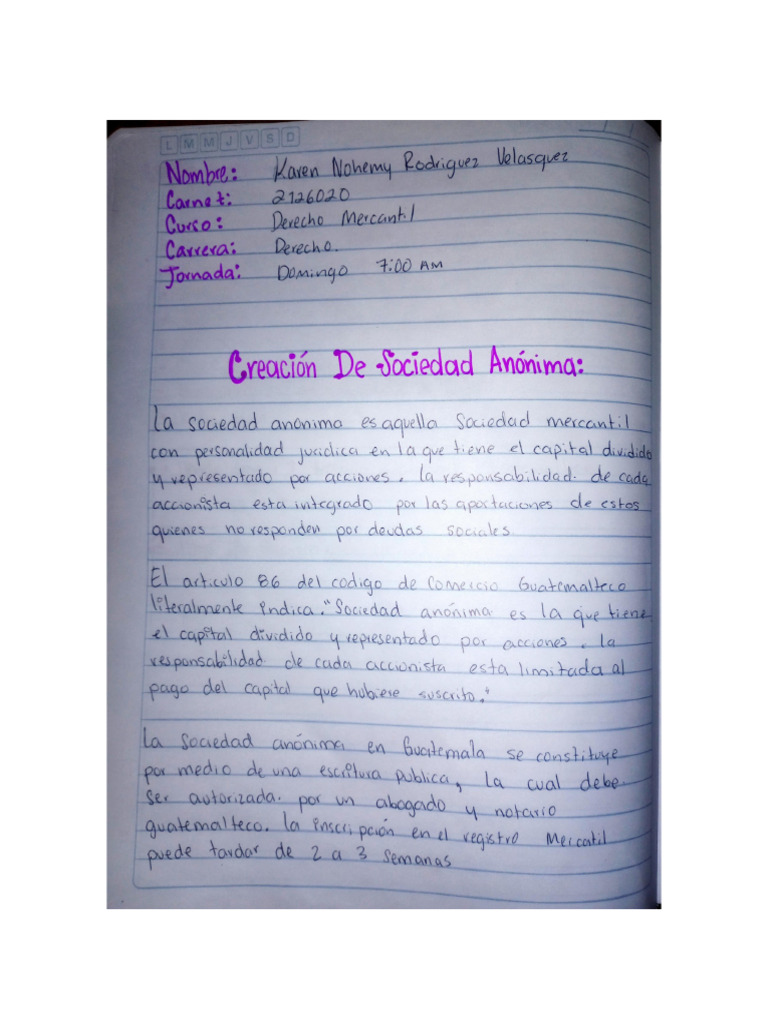 L M M J V S D
Nombre: Karen Nohemy Rodriguez Velasquez
Carnet: 2126020
Curso: Derecho Mercantil
Carrera: Derecho.
Jornada: Domingo 7:00 AM
Creación De Sociedad Anónima:
La sociedad anonima es aquella Sociedad mercantil
con personalidad juridica en la que tiene el capital dividido
y representado por acciones. la responsabilidad. de cada
accionista esta integrado por las aportaciones de estos
quienes no responden por deudas sociales
El articulo 86 del codigo de Comercio Guatemalteco
literalmente indica. "Sociedad anónima es la que tiene
el capital dividido y representado por acciones. la
responsabilidad de cada accionista esta limitada al
pago del capital que hubiere suscrito."
La Sociedad anónima en Guatemala se constituye
por medio de una escritura publica, la cual debe
ser autorizada. por un abogado y notario
guatemalteco. la inscripción en el registro Mercatil
puede tardar de 2 a 3 semanas